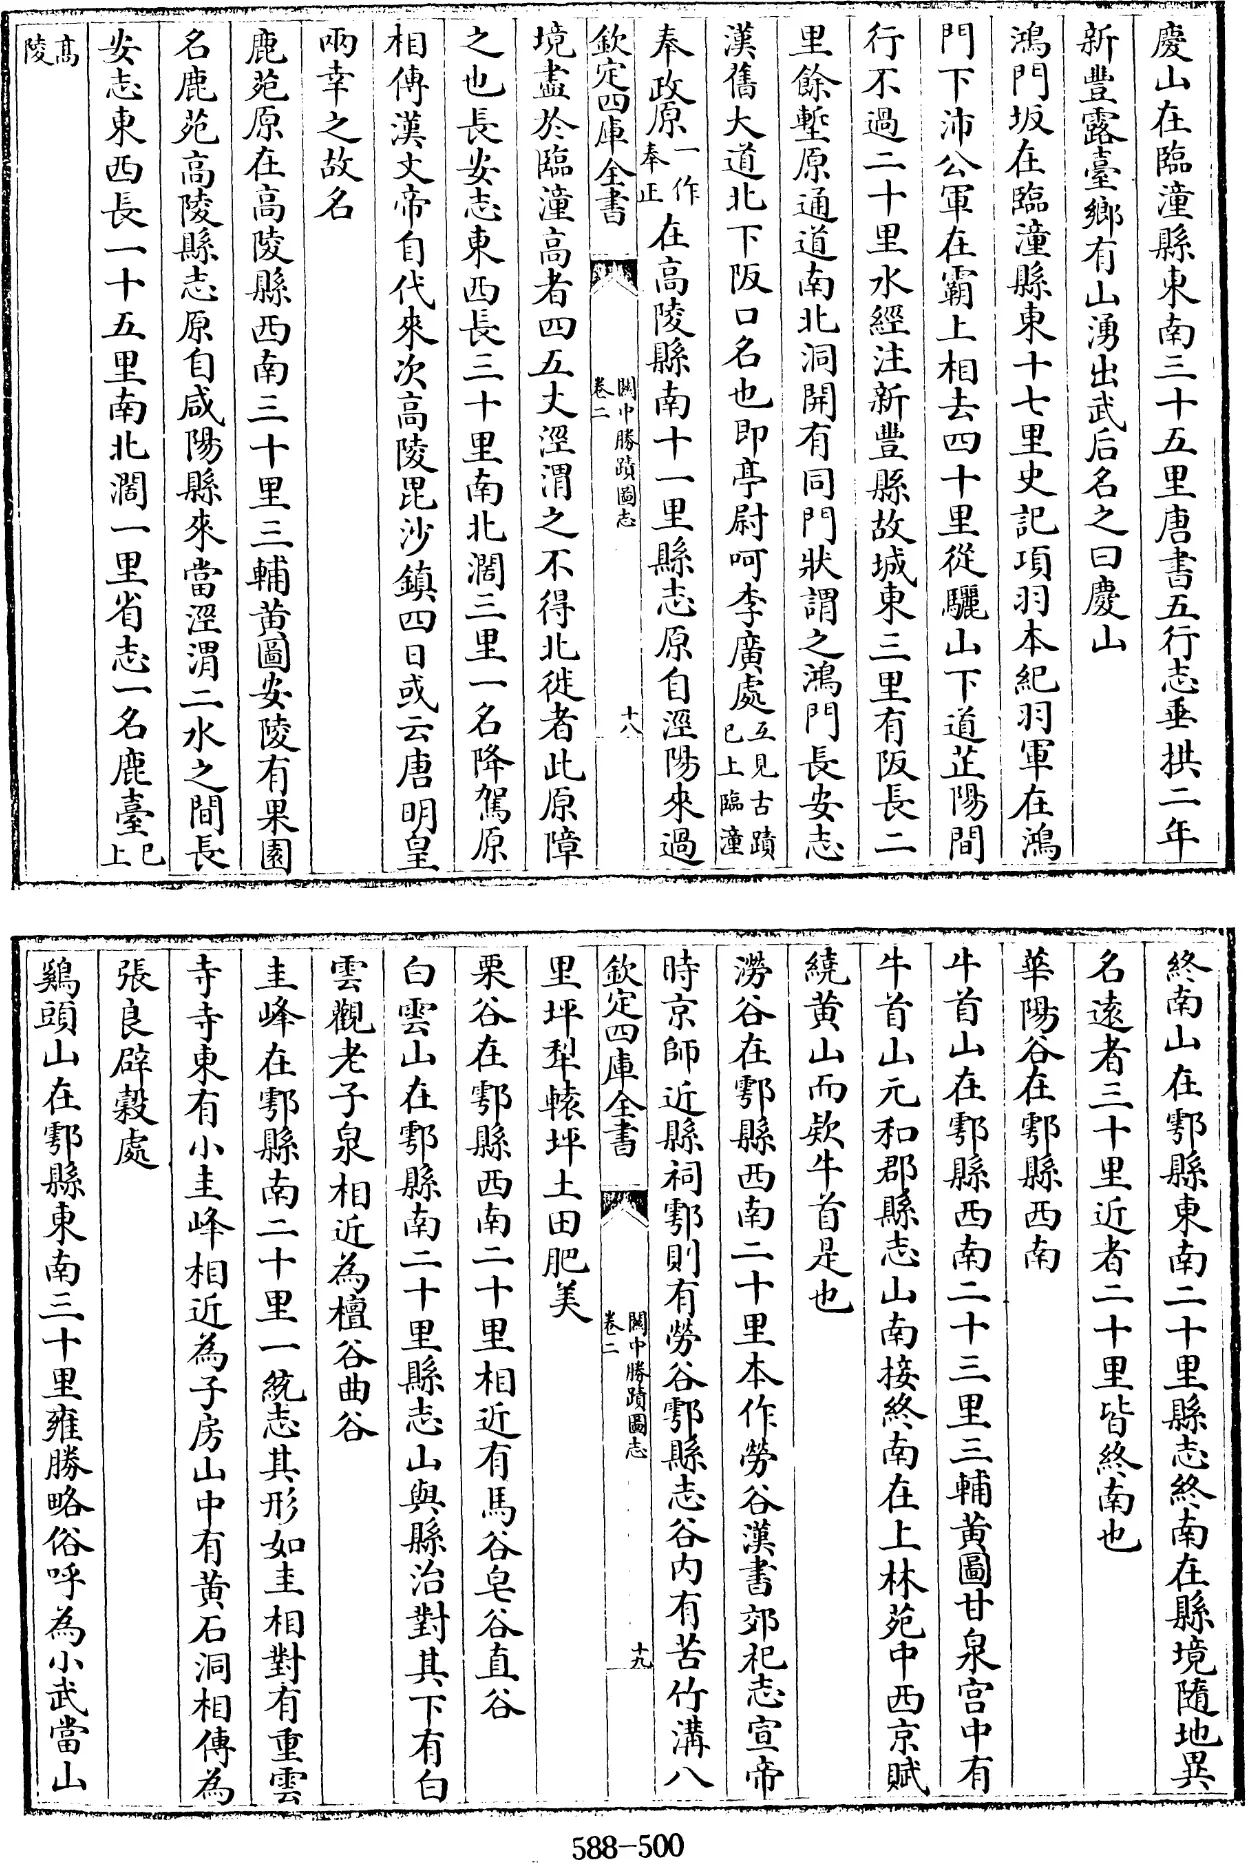 慶山在臨潼縣東南三十五里唐書五行志垂拱二年
新豐露臺鄉有山湧出武后名之曰慶山
鴻門坂在臨潼縣東十七里史記項羽本紀羽軍在鴻
門下沛公軍在霸上相去四十里從驪山下道芷陽間
行不過二十里水經注新豐縣故城東三里有阪長二
里餘塹原通道南北洞開有同門狀謂之鴻門長安志
漢舊大道北下阪口名也即亭尉呵李廣處互見古蹟已上臨潼
奉政原一作奉正在高陵縣南十一里縣志原自涇陽來過
欽定四庫全書 關中勝蹟圖志 卷二 十八
境盡於臨潼高者四五丈涇渭之不得北徙者此原障
之也長安志東西長三十里南北濶三里一名降駕原
相傳漢文帝自代來次高陵毘沙鎮四日或云唐明皇
兩幸之故名
鹿苑原在高陵縣西南三十里三輔黄圖安陵有果園
名鹿苑高陵縣志原自咸陽縣來當涇渭二水之間長
安志東西長一十五里南北濶一里省志一名鹿臺已上
高陵
終南山在鄠縣東南二十里縣志終南在縣境隨地異
名遠者三十里近者二十里皆終南也
華陽谷在鄠縣西南
牛首山在鄠縣西南二十三里三輔黄圖甘泉宮中有
牛首山元和郡縣志山南接終南在上林苑中西京賦
繞黄山而欵牛首是也
澇谷在鄠縣西南二十里本作勞谷漢書郊祀志宣帝
時京師近縣祠鄠則有勞谷鄠縣志谷内有苦竹溝八
欽定四庫全書 關中勝蹟圖志 卷二 十九
里坪犁轅坪土田肥美
栗谷在鄠縣西南二十里相近有馬谷皂谷直谷
白雲山在鄠縣南二十里縣志山與縣治對其下有白
雲觀老子泉相近為檀谷曲谷
圭峰在鄠縣南二十里一統志其形如圭相對有重雲
寺寺東有小圭峰相近為子房山中有黄石洞相傳為
張良辟穀處
鷄頭山在鄠縣東南三十里雍勝略俗呼為小武當山
588-500